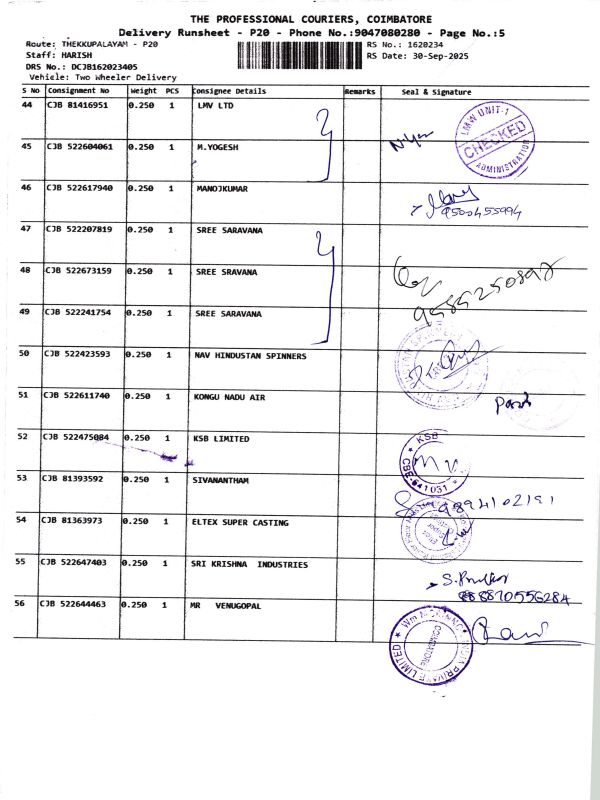 THE PROFESSIONAL COURIERS, COIMBATORE
Delivery Runsheet - P20 - Phone No.:9047080280 - Page No.:5
Route: THEKKUPALAYAM - P20 RS No.: 1620234
Staff: HARISH RS Date: 30-Sep-2025
DRS No.: DCJB162023405
Vehicle: Two Wheeler Delivery
S No Consignment No Weight PCS Consignee Details Remarks Seal & Signature
44 CJB 81416951 0.250 1 LMV LTD
LMW UNIT-1 CHECKED ADMINISTRATION
45 CJB 522604061 0.250 1 M.YOGESH
46 CJB 522617940 0.250 1 MANOJKUMAR
9500455994
47 CJB 522207819 0.250 1 SREE SARAVANA
48 CJB 522673159 0.250 1 SREE SRAVANA
9585250897
49 CJB 522241754 0.250 1 SREE SARAVANA
50 CJB 522423593 0.250 1 NAV HINDUSTAN SPINNERS
51 CJB 522611740 0.250 1 KONGU NADU AIR
52 CJB 522475084 0.250 1 KSB LIMITED
KSB CBE-641 031
53 CJB 81393592 0.250 1 SIVANANTHAM
9894102191
54 CJB 81363973 0.250 1 ELTEX SUPER CASTING
55 CJB 522647403 0.250 1 SRI KRISHNA INDUSTRIES
56 CJB 522644463 0.250 1 MR VENUGOPAL
INDIA PRIVATE LIMITED COIMBATORE